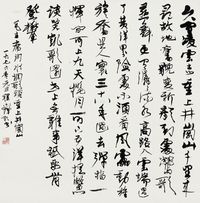 久有凌雲志重上井岡山千里来
尋故地舊貌變新顔到處鶯歌
燕舞更有潺潺流水高路入雲端
過了黄洋界險處不須看風雷動
旌旗奮是人寰三十八年過去彈指一
揮間可上九天攬月可下五洋捉鱉
談笑凱歌還世上無難事只要肯
登攀
毛主席詞水調歌頭重上井岡山
一九七六年